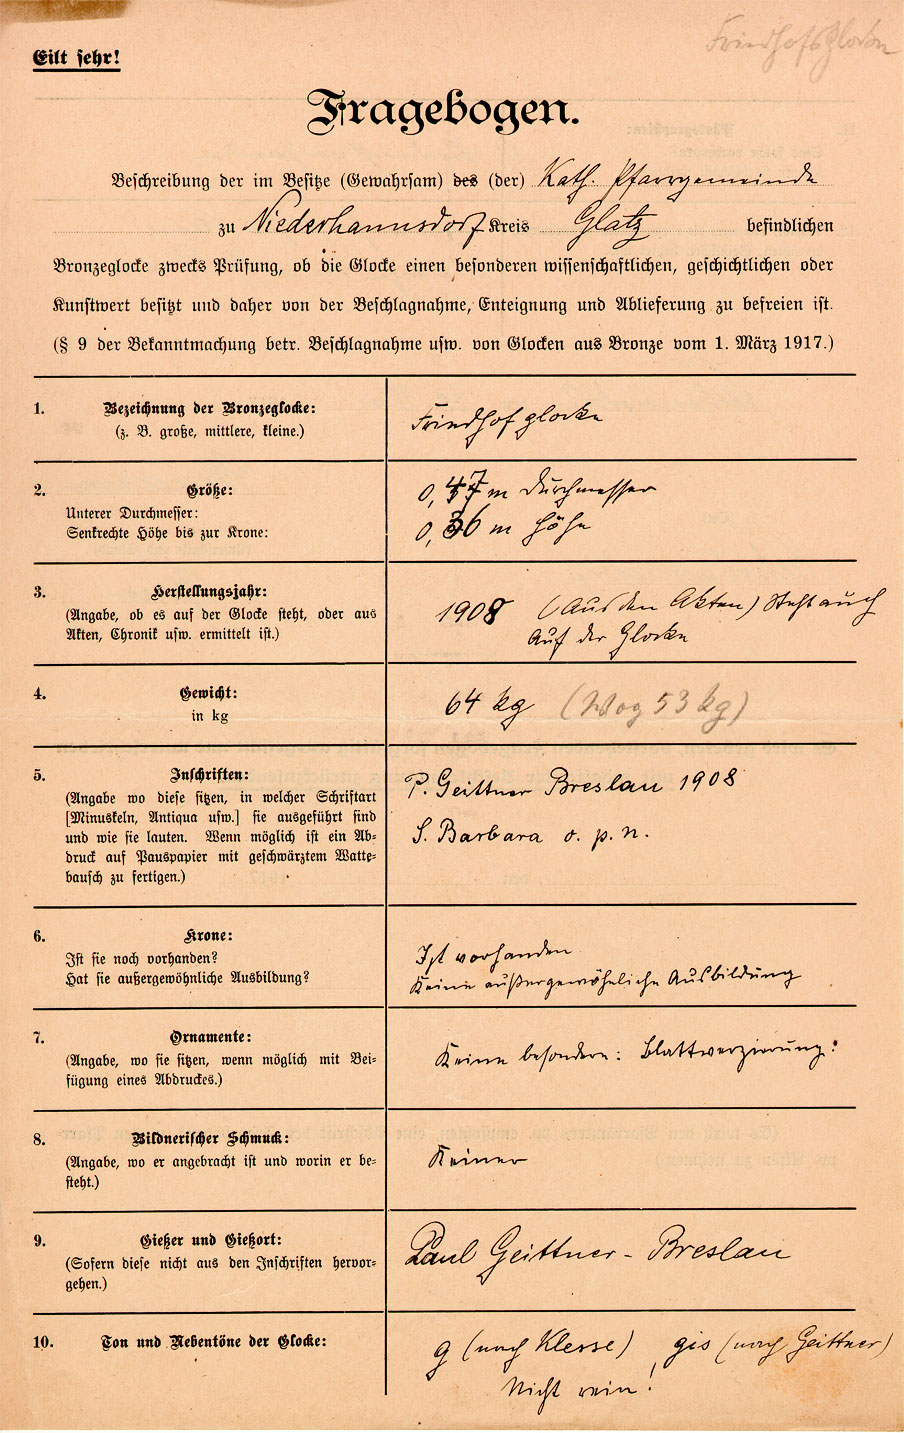 Friedhofsglocke
Eilt sehr!
Fragebogen.
Beschreibung der im Besitze (Gewahrsam) des (der) Kath. Pfarrgemeinde
zu Niederhannsdorf Kreis Glatz befindlichen
Bronzeglocke zwecks Prüfung, ob die Glocke einen besonderen wissenschaftlichen, geschichtlichen oder
Kunstwert besitzt und daher von der Beschlagnahme, Enteignung und Ablieferung zu befreien ist.
(§ 9 der Bekanntmachung betr. Beschlagnahme usw. von Glocken aus Bronze vom 1. März 1917.)
1. Bezeichnung der Bronzeglocke:
(z. B. große, mittlere, kleine.)
Friedhofglocke
2. Größe:
Unterer Durchmesser:
Senkrechte Höhe bis zur Krone:
0,47 m Durchmesser
0,36 m Höhe
3. Herstellungsjahr:
(Angabe, ob es auf der Glocke steht, oder aus
Akten, Chronik usw. ermittelt ist.)
1908 (Aus den Akten) Steht auch
Auf der Glocke
4. Gewicht:
in kg
64 kg (Wog 53 kg)
5. Inschriften:
(Angabe wo diese sitzen, in welcher Schriftart
[Minuskeln, Antiqua usw.] sie ausgeführt sind
und wie sie lauten. Wenn möglich ist ein Ab-
druck auf Pauspapier mit geschwärztem Watte-
bausch zu fertigen.)
P. Geittner Breslau 1908
S. Barbara o. p. n.
6. Krone:
Ist sie noch vorhanden?
Hat sie außergewöhnliche Ausbildung?
Ist vorhanden
Keine außergewöhnliche Ausbildung
7. Ornamente:
(Angabe, wo sie sitzen, wenn möglich mit Bei-
fügung eines Abdruckes.)
Keine besondere: Blattverzierung.
8. Bildnerischer Schmuck:
(Angabe, wo er angebracht ist und worin er be-
steht.)
Keiner
9. Gießer und Gießort:
(Sofern diese nicht aus den Inschriften hervor-
gehen.)
Paul Geittner - Breslau
10. Ton und Nebentöne der Glocke:
g (nach Klesse), gis (nach Geittner)
Nicht rein!